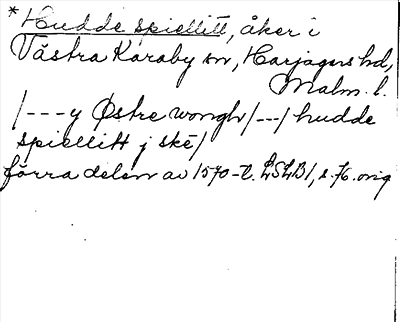 * Hudde spiellitt, åker i
Västra Karaby sn, Harjagers hd,
Malm. l.
/---y Østre wongh/---/hudde
spiellitt j ske/
förra delen av 1570-t. LSLB1, s. 76. orig